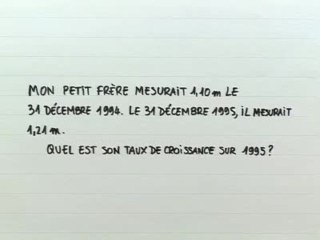 MON PETIT FRÈRE MESURAIT 1,10m LE
31 DÉCEMBRE 1994. LE 31 DÉCEMBRE 1995, IL MESURAIT
1,21 m.
QUEL EST SON TAUX DE CROISSANCE SUR 1995?